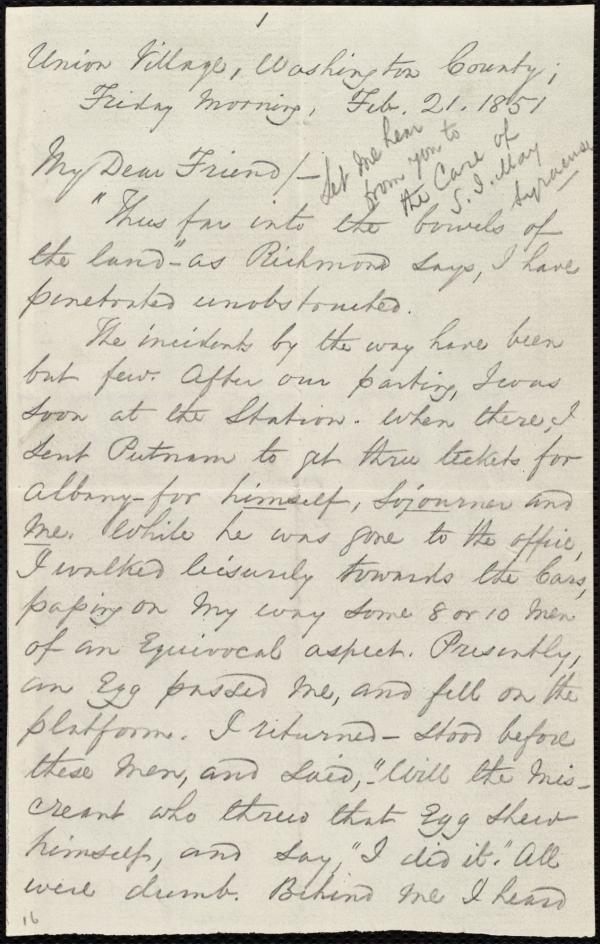 1
Union Village, Washington County;
Friday Morning, Feb. 21. 1851
Let me hear
from you to
the Care of
S. J. May
Syracuse
My Dear Friend/-
"Thus far into the bowels of
the land"-as Richmond says, I have
penetrated unobstructed.
The incidents by the way have been
but few. After our parting, I was
soon at the Station. When there, I
sent Putnam to get three tickets for
Albany-for himself, Sojourner and
Me. While he was gone to the office,
I walked leisurely towards the Cars,
passing on my way some 8 or 10 Men
of an Equivocal aspect. Presently,
an Egg passed Me, and fell on the
platform. I returned-stood before
these Men, and said, "Will the Mis-
creant who threw that Egg shew
himself, and say, "I did it." All
were dumb. Behind Me I heard
16